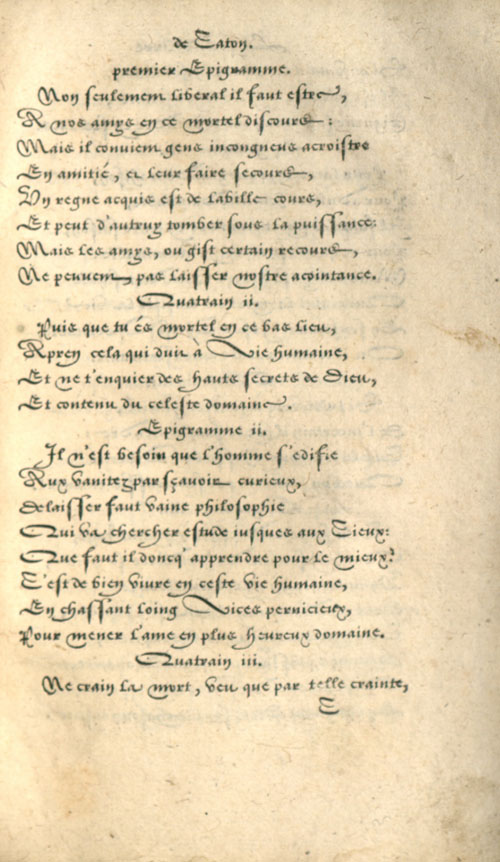 de Caton.
premier Epigramme.
Non seulement liberal il faut estre,
A nos amys en ce mortel discours :
Mais il convient gens incongneus acroistre
En amitié, et leur faire secours,
Un regne acquis est de labille cours,
Et peut d'autruy tomber sous la puissance:
Mais les amys, ou gist certain recours,
Ne peuvent pas laisser nostre acointance.
Quatrain ii.
Puis que tu és mortel en ce bas lieu,
Apren cela qui duit à Vie humaine,
Et ne t'enquier des hauts secrets de Dieu,
Et contenu du celeste domaine.
Epigramme ii.
Il n'est besoin que l'homme s'edifie
Aux vanitez par sçavoir curieux,
Delaisser faut vaine philosophie
Qui va chercher estude iusques aux Cieux:
Que faut il doncq' apprendre pour le mieux?
C'est de bien vivre en ceste vie humaine,
En chassant loing Vices pernicieux,
Pour mener l'ame en plus heureux domaine.
Quatrain iii.
Ne crain la mort, veu que par telle crainte,
C